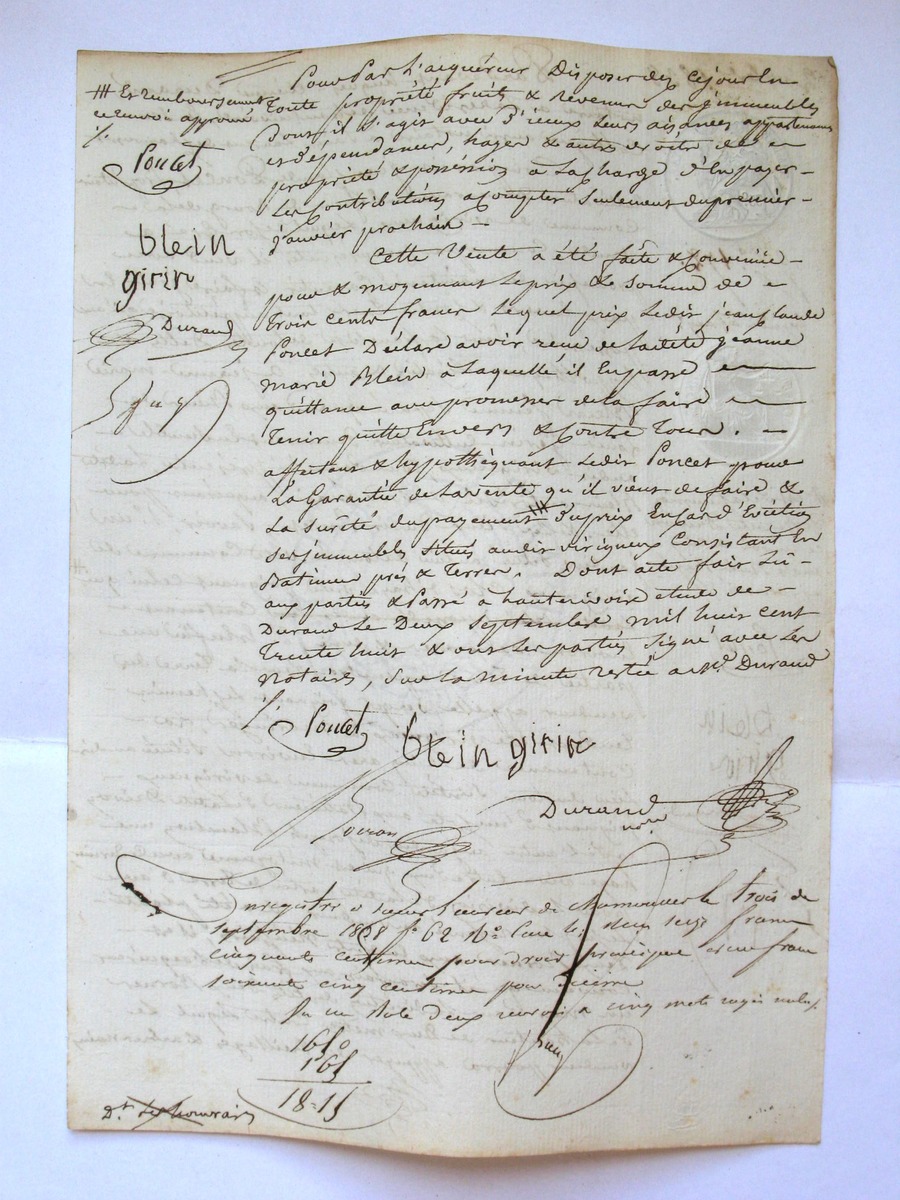 Pour Par L'acquéreur Disposer dez cejour En
toute propriété fruits & Revenus des jmmeubles
Dont il s'agit avec d'iceux Leurs aisances appartenances
et dépendances, noyer & autres droits de
propriété & possession à La Charge d'En payer
Les Contributions acompter seulement du premier
janvier prochain
Cette Vente a été faite & Convenue
pour & moyennant Le prix & somme de
trois cents francs Lequel prix Ledit jean Claude
Poncet Déclare avoir reçu de Ladite jeanne
marie Blein à Laquelle il En passe
quittance avec promesse de la faire
tenir quitte Envers & Contre tous.
affectant & hypothéquant Ledit Poncet pour
La Garantie de La vente qu'il vient de faire &
La sureté du payement # du prix En Cas d'Eviction
ses jmmeubles situés audit virigneux Consistant En
Batiment prés & terres. Dont acte fait Lû
aux parties & Passé à hauterivoire étude de
Durand Le Deux septembre mil huit cent
trente huit & ont Les parties signé avec Les
Notaires, sur La minute restée à Me. Durand
# Et remboursement
ce renvoi approuvé
Poncet
blein
girin
Durand
Poncet
blein girin
Durand
nore
Enregistré à Saint Laurent de Chamousset le trois
septembre 1838 fo 62 Vo Case 1 reçu seize francs
cinquante centimes pour droit principal et un franc
soixante cinq centimes pour Dixième
a cinq mots rayés nuls
16 50
1 65
18-15